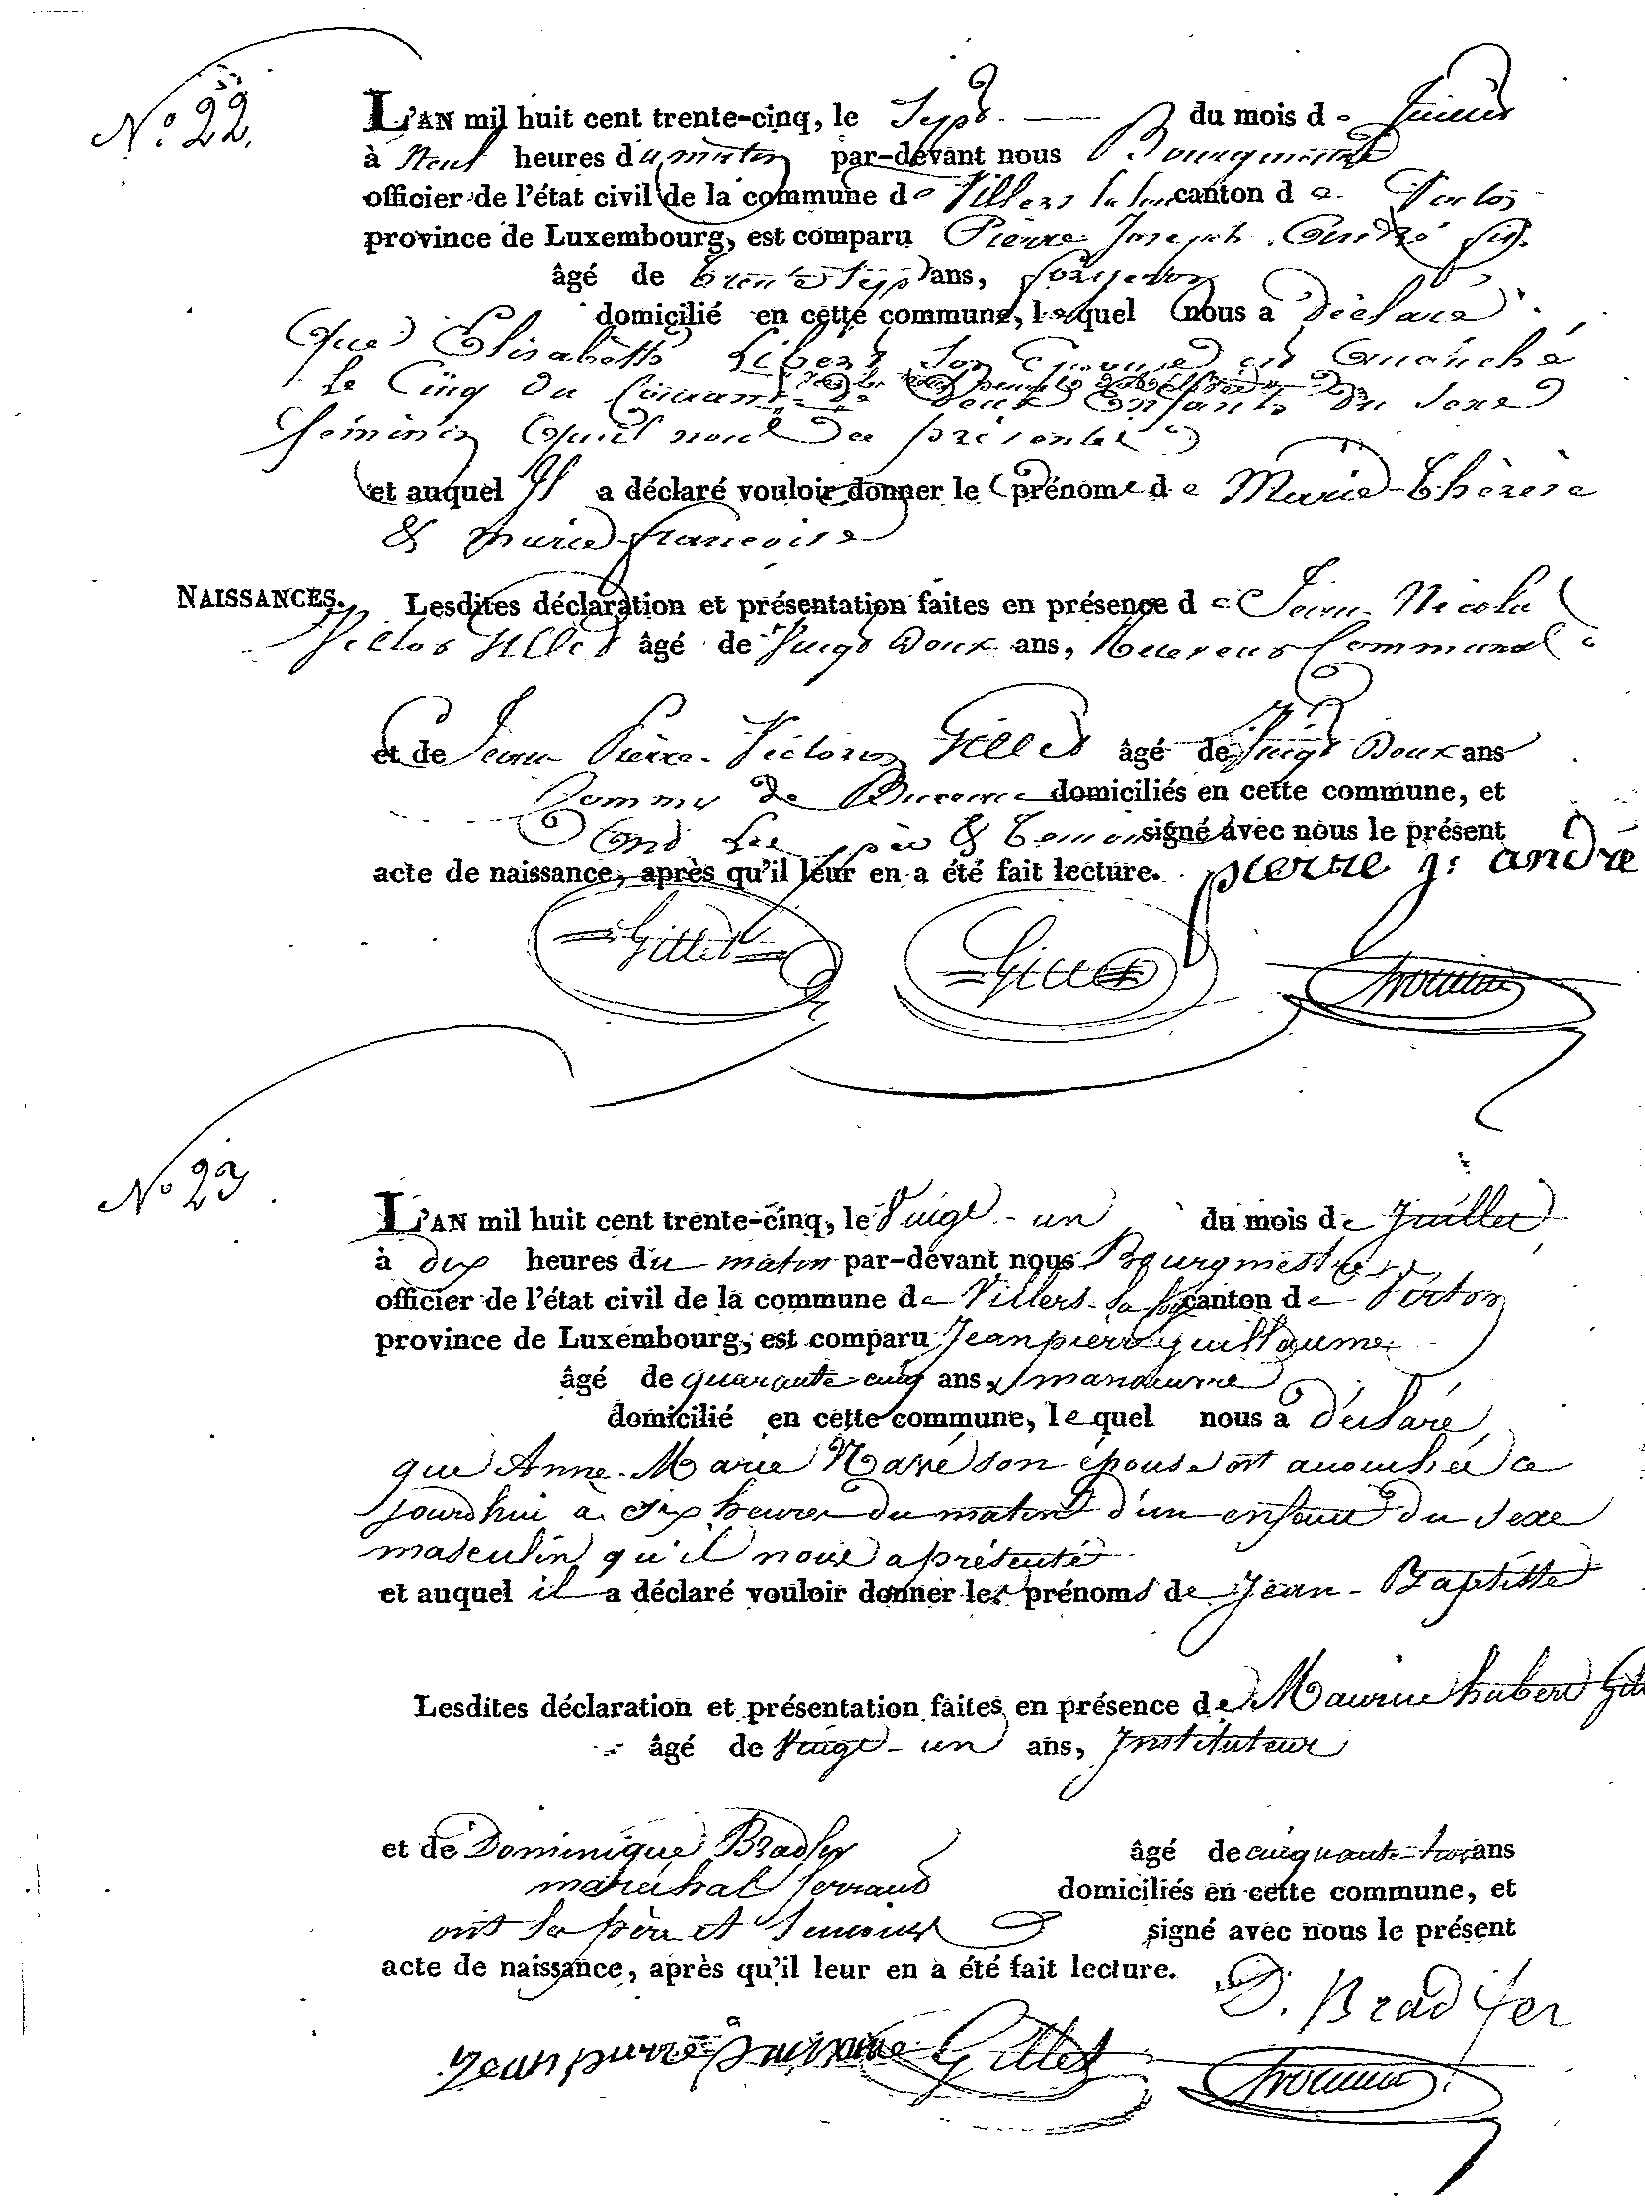 N.° 22.
L'AN mil huit cent trente-cinq, le Sept du mois de
à Neuf heures du matin par-devant nous Bourgmestre
officier de l'état civil de la commune de Villers la loue canton de Virton
province de Luxembourg, est comparu Pierre Joseph André
âgé de trente Sept ans, forgeron
domicilié en cette commune, lequel nous a Déclaré
que Elisabeth Libert Son Epouse est accouché
le Cinq du Courant de Deux Enfants du Sexe
féminin qu'il nous a présenté
et auquel Il a déclaré vouloir donner le prénoms de Marie Thérèse
& Marie françoise
NAISSANCES.
Lesdites déclaration et présentation faites en présence de Jean Nicola
Gillet âgé de Vingt Deux ans, Receveur Communal
et de Jean Pierre Victor Gillet âgé de Vingt Deux ans
Commis de Bureau domiciliés en cette commune, et
Ond Les père & temoins signé avec nous le présent
acte de naissance, après qu'il leur en a été fait lecture. pierre j: andré
Gillet Gillet
N° 23
L'AN mil huit cent trente-cinq, le Vingt-un du mois de Juillet
à dix heures du matin par-devant nous Bourgmestre
officier de l'état civil de la commune de Villers-la loue canton de Virton
province de Luxembourg, est comparu Jean pierre guillaume
âgé de quarante cinq ans, manoeuvre
domicilié en cette commune, lequel nous a déclaré
que Anne-Marie Navé son épouse est accouchée ce
jourdhui a six heures du matin d'un enfant du sexe
masculin qu'il nous a présenté
et auquel il a déclaré vouloir donner les prénoms de Jean-Baptiste
Lesdites déclaration et présentation faites en présence de Maurice hubert
âgé de Vingt-un ans, Instituteur
et de Dominique Bradfer âgé de cinquante-trois ans
maréchal ferrand domiciliés en cette commune, et
ont le père et temoins signé avec nous le présent
acte de naissance, après qu'il leur en a été fait lecture. D. Bradfer
Jean pierre guillaume Gillet